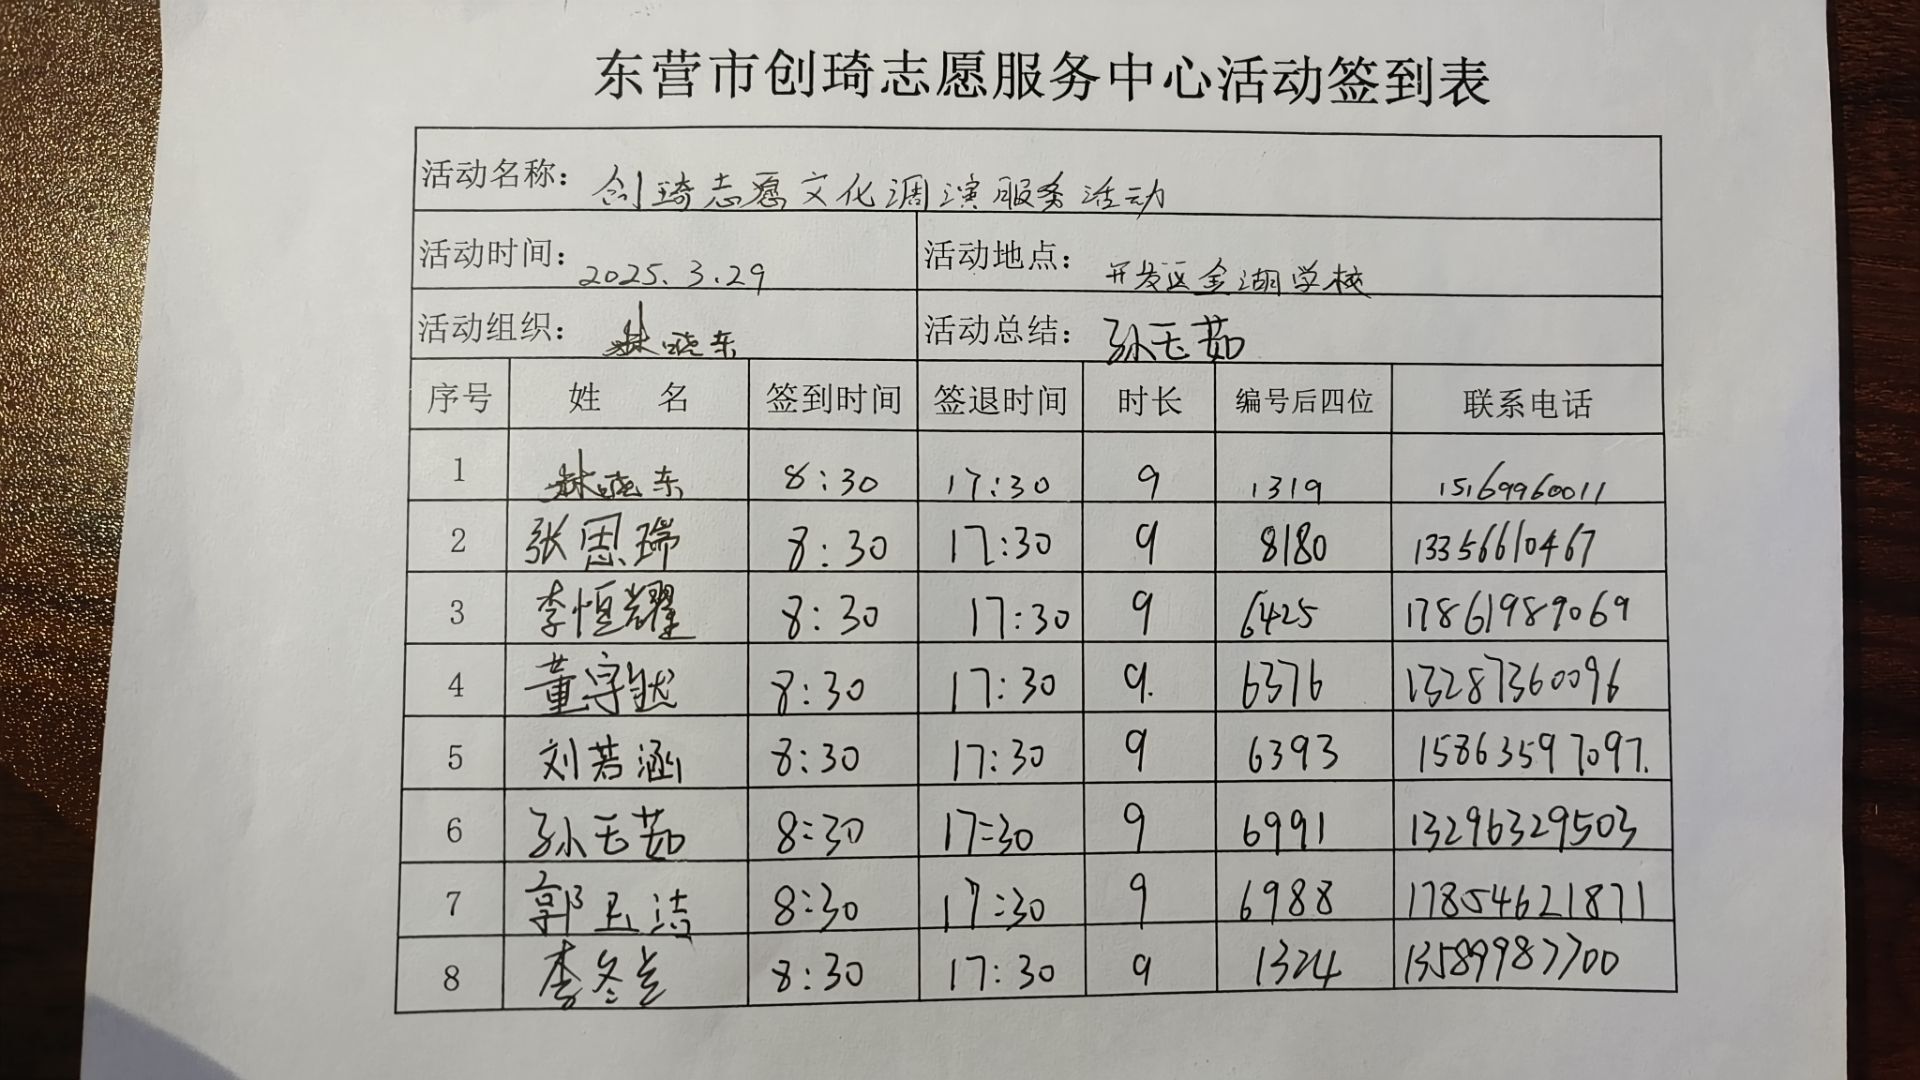 东营市创琦志愿服务中心活动签到表
活动名称: 创琦志愿文化调演服务活动
活动时间: 2025.3.29 活动地点: 开发区金湖学校
活动组织: 林晓东 活动总结: 孙玉茹
序号 姓 名 签到时间 签退时间 时长 编号后四位 联系电话
1 林晓东 8:30 17:30 9 1319 15169960011
2 张恩瑞 8:30 17:30 9 8180 13356610467
3 李恒耀 8:30 17:30 9 6425 17861989069
4 董 8:30 17:30 9. 6376 13287360096
5 刘若涵 8:30 17:30 9 6393 15863597097.
6 孙玉茹 8:30 17:30 9 6991 13296329503
7 郭玉洁 8:30 17:30 9 6988 17854621871
8 李冬兰 8:30 17:30 9 1324 13589987700